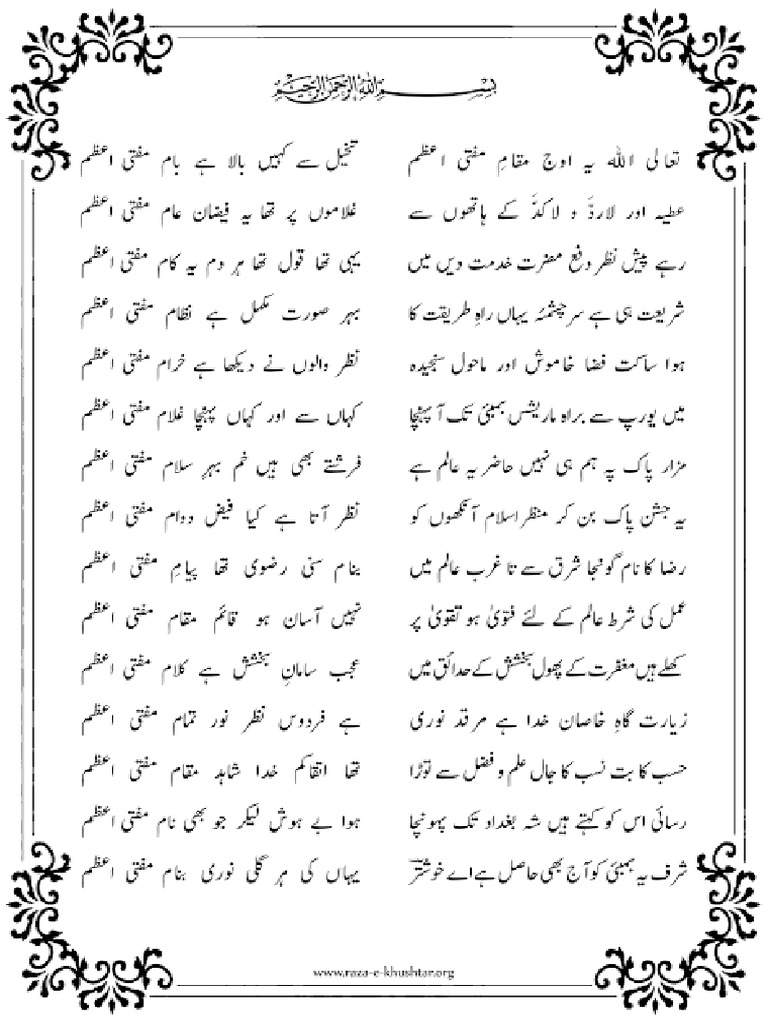 بسم الله الرحمن الرحيم
تعالی اللہ یہ اوجِ مقامِ مفتی اعظم تخیل سے کہیں بالا ہے بام مفتی اعظم
عطیہ اور لاردَّ و لاکدَّ کے ہاتھوں سے غلاموں پر تھا یہ فیضان عام مفتی اعظم
رہے پیش نظر دفع مضرت خدمت دیں میں یہی تھا قول تھا ہر دم یہ کام مفتی اعظم
شریعت ہی ہے سرچشمۂ یہاں راہِ طریقت کا بہر صورت مکمل ہے نظام مفتی اعظم
ہوا ساکت فضا خاموش اور ماحول سنجیدہ نظر والوں نے دیکھا ہے خرام مفتی اعظم
میں یورپ سے براہ ماریشس بمبئی تک آ پہنچا کہاں سے اور کہاں پہنچا غلام مفتی اعظم
مزار پاک پہ ہم ہی نہیں حاضر یہ عالم ہے فرشتے بھی ہیں خم بہرِ سلام مفتی اعظم
یہ جشن پاک بن کر منظر اسلام آنکھوں کو نظر آتا ہے کیا فیض دوام مفتی اعظم
رضا کا نام گونجا شرق سے تا غرب عالم میں بنام سنی رضوی تھا پیامِ مفتی اعظم
عمل کی شرط عالم کے لئے فتویٰ ہو تقویٰ پر نہیں آساں ہو قائم مقام مفتی اعظم
کھلے ہیں مغفرت کے پھول بخشش کے حدائق میں عجب سامانِ بخشش ہے کلام مفتی اعظم
زیارت گاہِ خاصان خدا ہے مرقد نوری ہے فردوس نظر نور تمام مفتی اعظم
حسب کا بت نسب کا جال علم و فضل سے توڑا تھا اتقاکم خدا شاہد مقام مفتی اعظم
رسائی اس کو کہتے ہیں شہ بغداد تک پہونچا ہوا بے ہوش لیکر جو بھی نام مفتی اعظم
شرف یہ بمبئی کو آج بھی حاصل ہے اے خوشتر یہاں کی ہر گلی نوری بنام مفتی اعظم
www.raza-e-khushtar.org